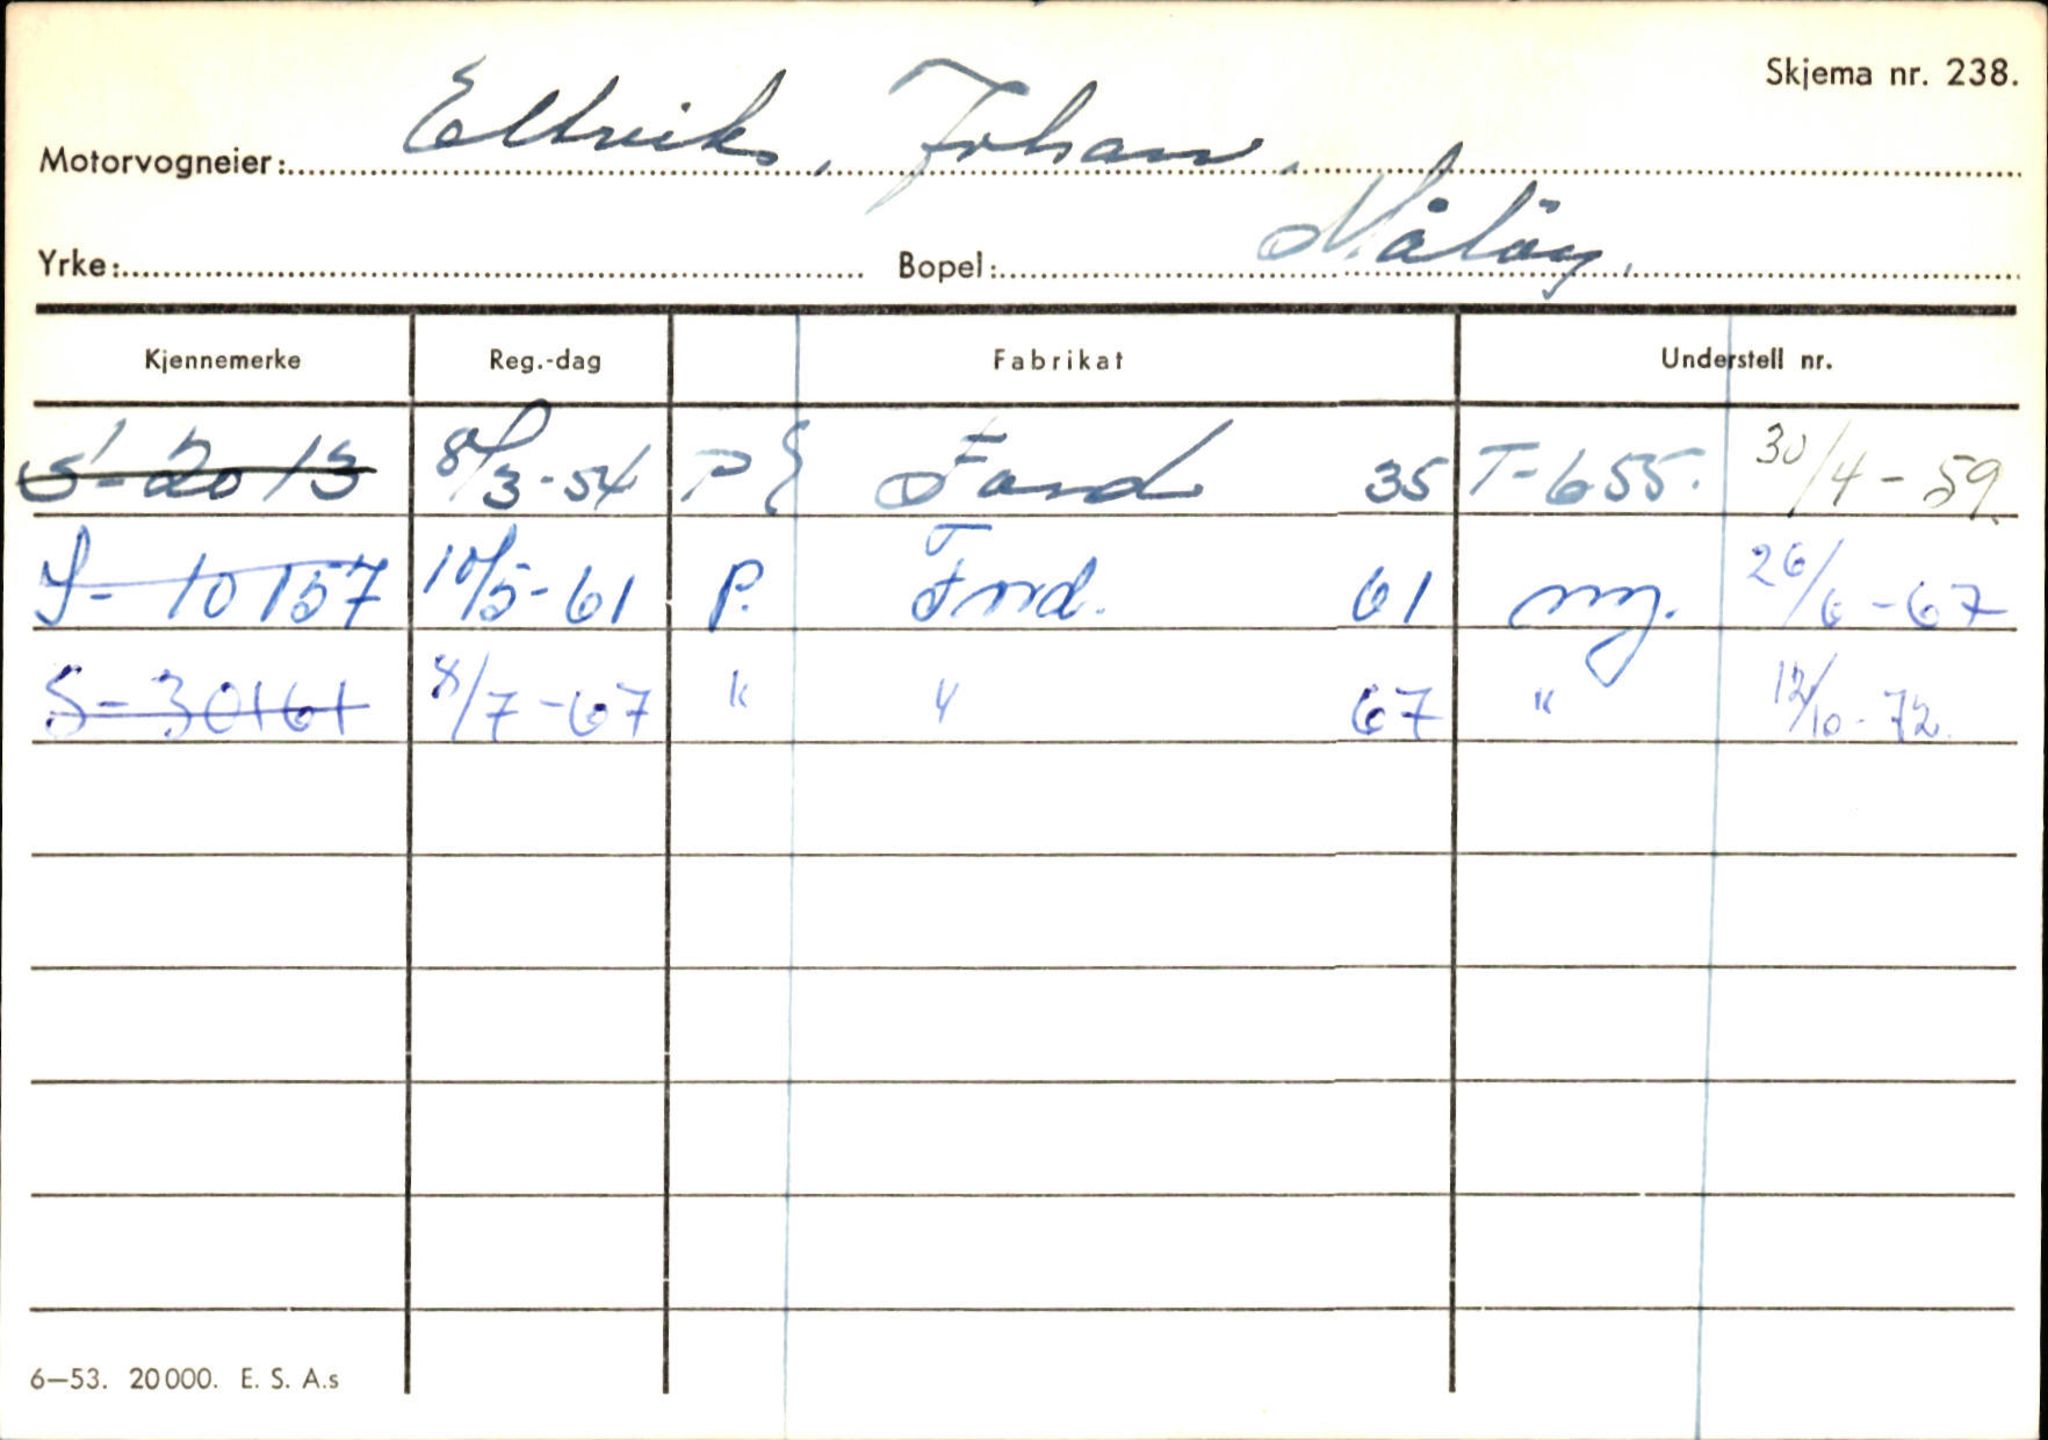 Skjema nr. 238.
Motorvogneier: Eltvik, Johan.
Yrke: Bopel: Måløy.
Kjennemerke Reg.-dag Fabrikat Understell nr.
S-2013 8/3-54 P { Ford 35 T-655. 30/4-59.
S-10157 10/5-61 P. Ford. 61 ny. 26/6-67
S-30161 8/7-67 " " 67 " 12/10-72.
6—53. 20 000. E. S. A.s